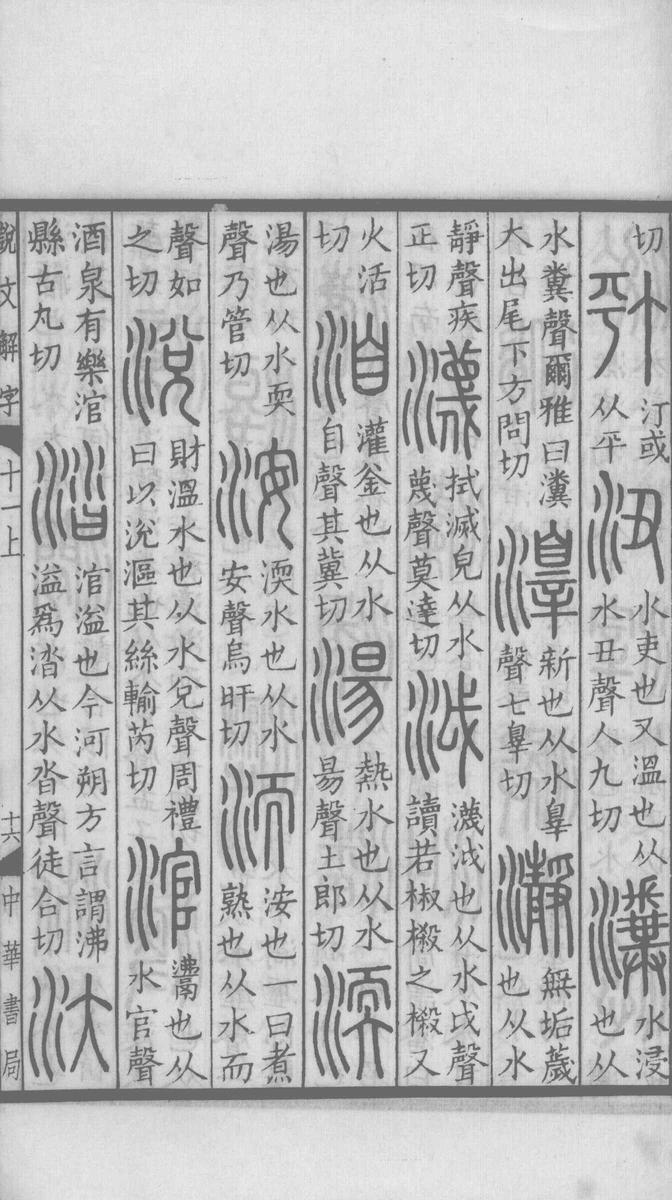 切 汀或从平 沑 水吏也又溫也从水丑聲人九切 瀵 水浸也从
水糞聲爾雅曰瀵大出尾下方問切 新也从水辠聲七辠切 瀞 無垢薉也从水
靜聲疾正切 瀎 拭滅皃从水蔑聲莫達切 泧 瀎泧也从水戉聲讀若椒樧之樧又
火活切 洎 灌釜也从水自聲其冀切 湯 熱水也从水昜聲土郎切 渜
湯也从水耎聲乃管切 洝 渜水也从水安聲烏旰切 洏 洝也一曰煮熟也从水而
聲如之切 涗 財溫水也从水兌聲周禮曰以涗漚其絲輸芮切 涫 也从水官聲
酒泉有樂涫縣古丸切 涾 涫溢也今河朔方言謂沸溢爲涾从水沓聲徒合切 汏
說文解字 十一上 十六 中華書局